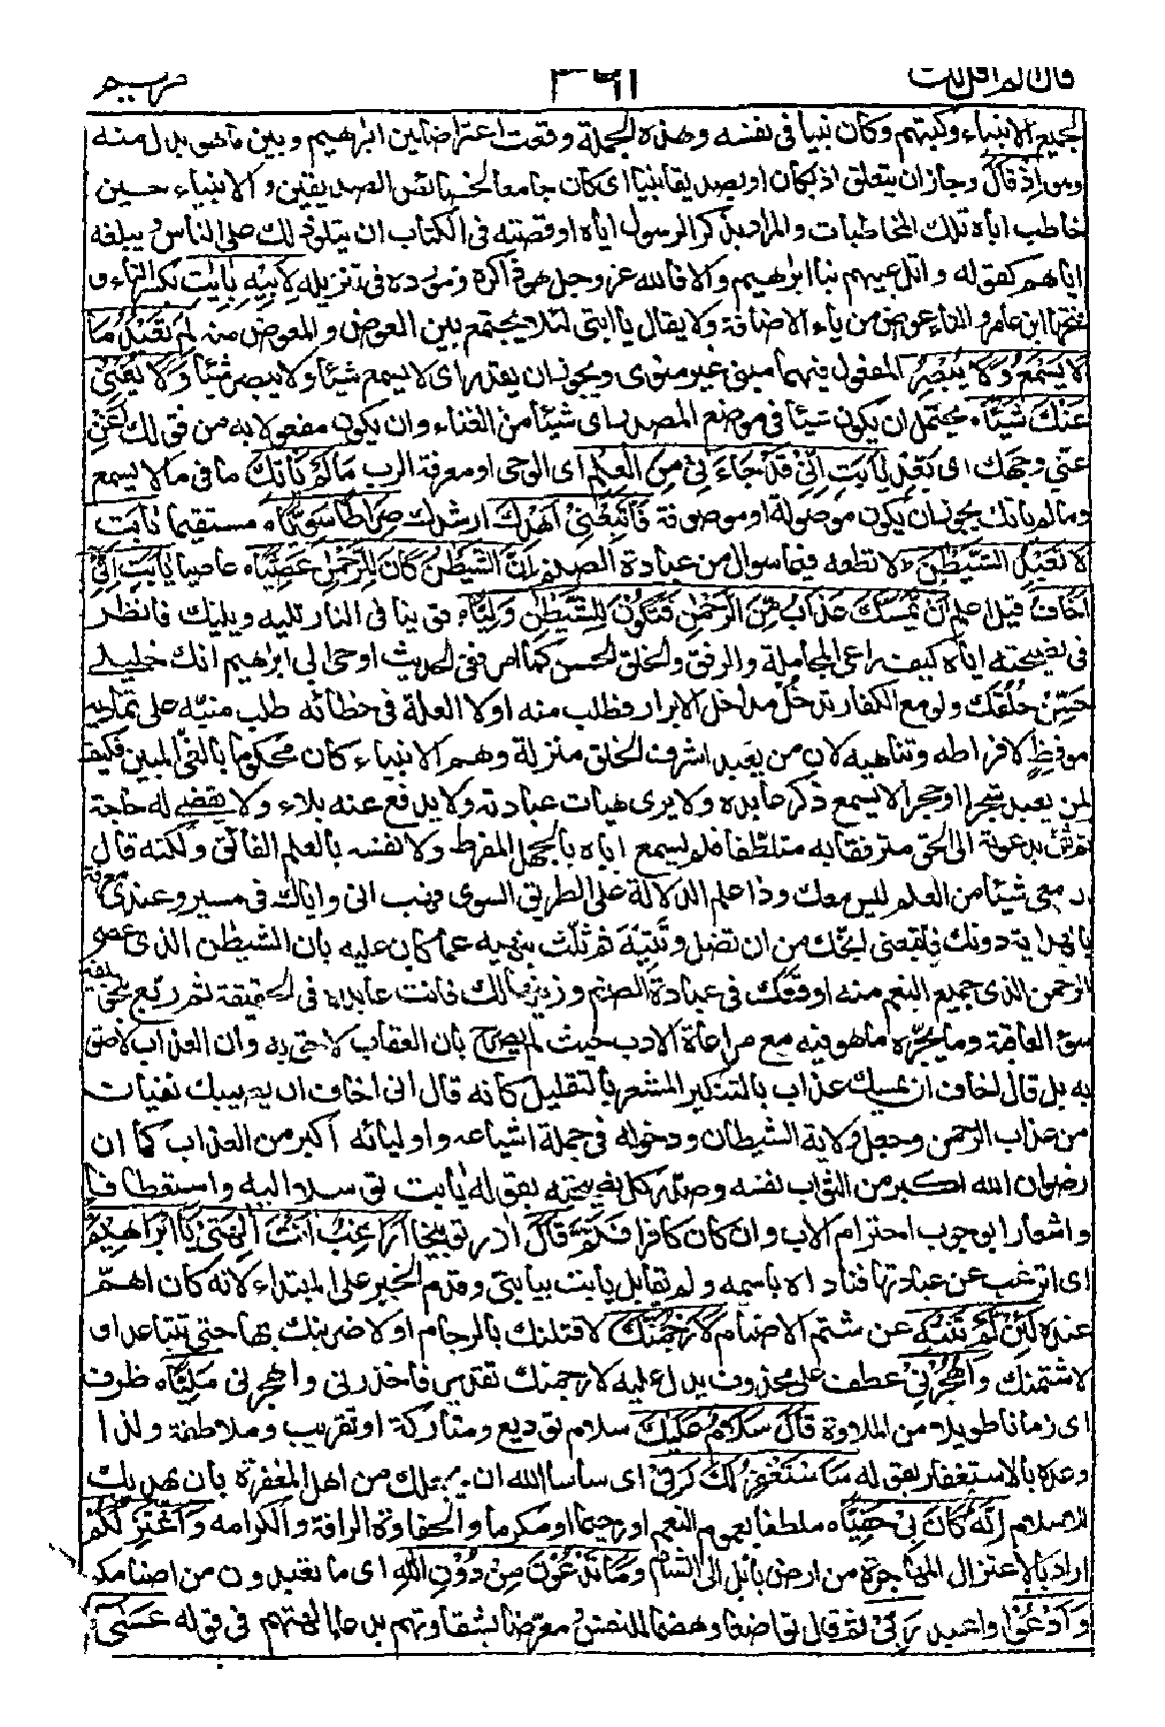 قال الم اقل لك ٣٩١ مريم
لجميع الانبياء وكتبهم وكان نبيا في نفسه وهذه الجملة وقعت اعتراضا بين ابراهيم وبين ما هو بدل منه
وهو اذ قال وجاز ان يتعلق اذ بكان او بصديقا نبيا اى كان جامعا لخصائص الصديقين والانبياء حسين
خاطب اباه تلك المخاطبات والمراد بذكر الرسول اياه وقصته في الكتاب ان يتلو ذلك على الناس ويبلغه
اياهم كقوله واتل عليهم نبا ابراهيم والا فالله عز وجل هو ذاكره ومورده في تنزيله لِاَبِيْهِ يٰاَبَتِ بكسر التاء و
فتحها ابن عامر والتاء عوض من ياء الاضافة ولا يقال يا ابتي لئلا يجتمع بين العوض والمعوض منه لِمَ تَعْبُدُ مَا
لَا يَسْمَعُ وَلَا يُبْصِرُ المفعول فيهما منسى غير منوى ويجوز ان يقدر اى لا يسمع شيئا ولا يبصر شيئا وَلَا يُغْنِيْ
عَنْكَ شَيْئًا يحتمل ان يكون شيئا في موضع المصدر اى شيئا من الغناء وان يكون مفعولا به من قولك اغن
عني وجهك اى بعد يٰاَبَتِ اِنِّيْ قَدْ جَاءَنِيْ مِنَ الْعِلْمِ اى الوحى او معرفة الرب مَا لَمْ يَاْتِكَ ما في ما لا يسمع
وما لم ياتك يجوز ان يكون موصولة او موصوفة فَاتَّبِعْنِيْ اَهْدِكَ ارشدك صِرَاطًا سَوِيًّا مستقيما يٰاَبَتِ
لَا تَعْبُدِ الشَّيْطٰنَ لا تطعه فيما سول من عبادة الصنم اِنَّ الشَّيْطٰنَ كَانَ لِلرَّحْمٰنِ عَصِيًّا عاصيا يٰاَبَتِ اِنِّيْ
اَخَافُ قيل اعلم اَنْ يَمَسَّكَ عَذَابٌ مِّنَ الرَّحْمٰنِ فَتَكُوْنَ لِلشَّيْطٰنِ وَلِيًّا قرينا في النار تليه ويليك فانظر
في نصيحته اياه كيف راعى المجاملة والرفق والخلق الحسن كما امر ففي الحديث اوحى الى ابراهيم انك خليلى
حَسِّنْ خُلُقَكَ ولو مع الكفار تدخل مداخل الابرار فطلب منه اولا العلة في خطائه طلب منبّه على تماديه
موقظٍ لافراطه وتناهيه لان من يعبد اشرف الخلق منزلة وهم الانبياء كان محكوما بالغي المبين فكيف
بمن يعبد شجرا او حجرا لا يسمع ذكر عابده ولا يرى هيات عبادته ولا يدفع عنه بلاء ولا يقضي له حاجة
ثم ثنى بدعوته الى الحق مترفقا به متلطفا فلم يسم اباه بالجهل المفرط ولا نفسه بالعلم الفائق ولكنه قال
ان معى شيئا من العلم ليس معك وذا علم الدلالة على الطريق السوى فهب انى واياك في مسير وعندى معرفة
بالهداية دونك فاتبعنى انجك من ان تضل وتتيه ثم ثلّث بنهيه عما كان عليه بان الشيطن الذى عصى
الرحمن الذى جميع النعم منه اوقعك في عبادة الصنم وزينها لك فانت عابده في الحقيقة ثم ربّع بتخويفه
سوء العاقبة وما يجرّه ما هو فيه مع مراعاة الادب حيث لم يصرح بان العقاب لاحق به وان العذاب لاصق
به بل قال اخاف ان يمسك عذاب بالتنكير المشعر بالتقليل كانه قال انى اخاف ان يصيبك نفيان
من عذاب الرحمن وجعل ولاية الشيطان ودخوله في جملة اشياعه واوليائه اكبر من العذاب كما ان
رضوان الله اكبر من الثواب نفسه وصدّر كل نصيحته بقوله يٰابت توسلا اليه واستعطافا
واشعارا بوجوب احترام الاب وان كان كافرا فثم قَالَ ازر توبيخا اَرَاغِبٌ اَنْتَ عَنْ اٰلِهَتِيْ يٰاِبْرٰهِيْمُ
اى اترغب عن عبادتها فناداه باسمه ولم يقابل يابت بيابني وقدم الخبر على المبتداء لانه كان اهمّ
عنده لَئِنْ لَّمْ تَنْتَهِ عن شتم الاصنام لَاَرْجُمَنَّكَ لاقتلنك بالرجام او لاضربنك بها حتى تتباعد او
لاشتمنك وَاهْجُرْنِيْ عطف على محذوف يدل عليه لارجمنك تقديره فاحذرنى واهجرنى مَلِيًّا ظرف
اى زمانا طويلا من الملاوة قَالَ سَلَامٌ عَلَيْكَ سلام توديع ومتاركة او تقريب وملاطفة ولذا
وعده بالاستغفار بقوله سَاَسْتَغْفِرُ لَكَ رَبِّيْ اى ساسأل الله ان يجعلك من اهل المغفرة بان يهديك
للاسلام اِنَّهُ كَانَ بِيْ حَفِيًّا ملطفا بعموم النعم او رحيما او مكرما والحفاوة الرافة والكرامة وَاَعْتَزِلُكُمْ
اراد بالاعتزال المهاجرة من ارض بابل الى الشام وَمَا تَدْعُوْنَ مِنْ دُوْنِ اللهِ اى ما تعبدون من اصنامكم
وَاَدْعُوْا واعبد رَبِّيْ ثم قال تواضعا وهضما للنفس ومعرضا بشقاوتهم بدعاء الهتهم في قوله عَسٰى